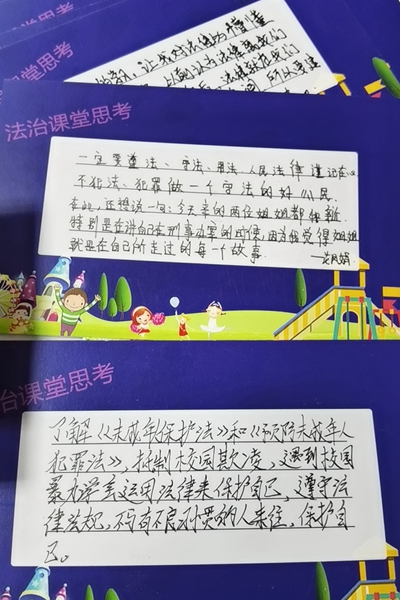 课堂思考
让我对法律
法治课堂思考
一定要遵法、守法、用法、人民法律谨记在心
不犯法、犯罪做一个守法的好小民
在此,还想说一句:今天来的两位姐姐都很
特别是在讲自己在刑事办案的时候,因为我觉得姐姐
就是在自己所走过的每一个故事
法治课堂思考
了解《未成年保护法》和《预防未成年人
犯罪法》,抵制校园欺凌,遇到校园
暴力学会运用法律来保护自己,遵守法
律法规,不与有不良习惯的人来往,保护自
己。